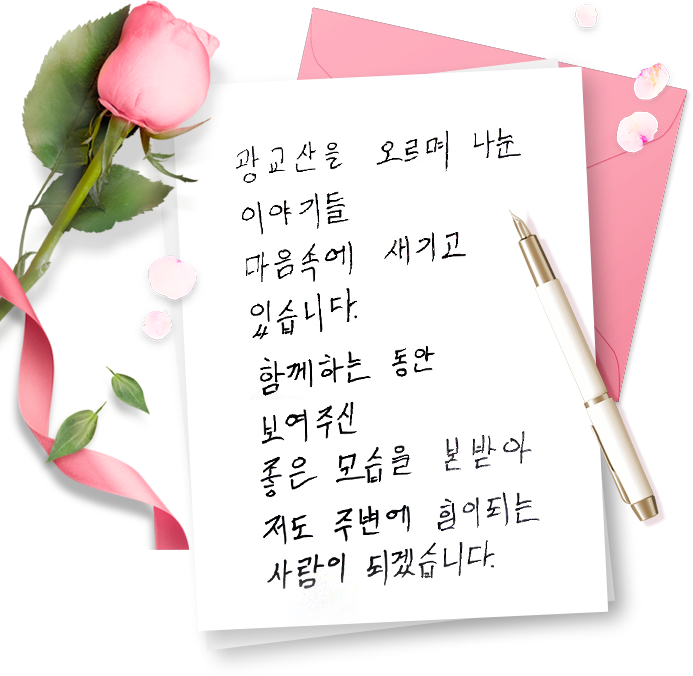 광교산을 오르며 나눈
이야기들
마음속에 새기고
있습니다.
함께하는 동안
보여주신
좋은 모습을 본받아
저도 주변에 힘이되는
사람이 되겠습니다.